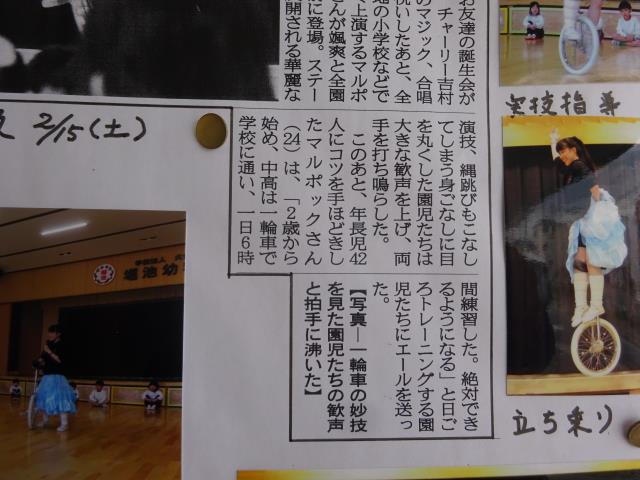 お友達の誕生会が
チャーリー吉村
のマジック、合唱
祝いしたあと、全
の小学校などで
上演するマルポ
さんが颯爽と全園
に登場。ステー
開される華麗な
演技、縄跳びもこなし
てしまう身ごなしに目
を丸くした園児たちは
大きな歓声を上げ、両
手を打ち鳴らした。
このあと、年長児42
人にコツを手ほどきし
たマルポックさん
(24)は、「2歳から
始め、中高は一輪車で
学校に通い、一日6時
間練習した。絶対でき
るようになる」と日ご
ろトレーニングする園
児たちにエールを送っ
た。
【写真―一輪車の妙技
を見た園児たちの歓声
と拍手に沸いた】
2/15(土)
実技指導
立ち乗り
学校法人
堀池幼